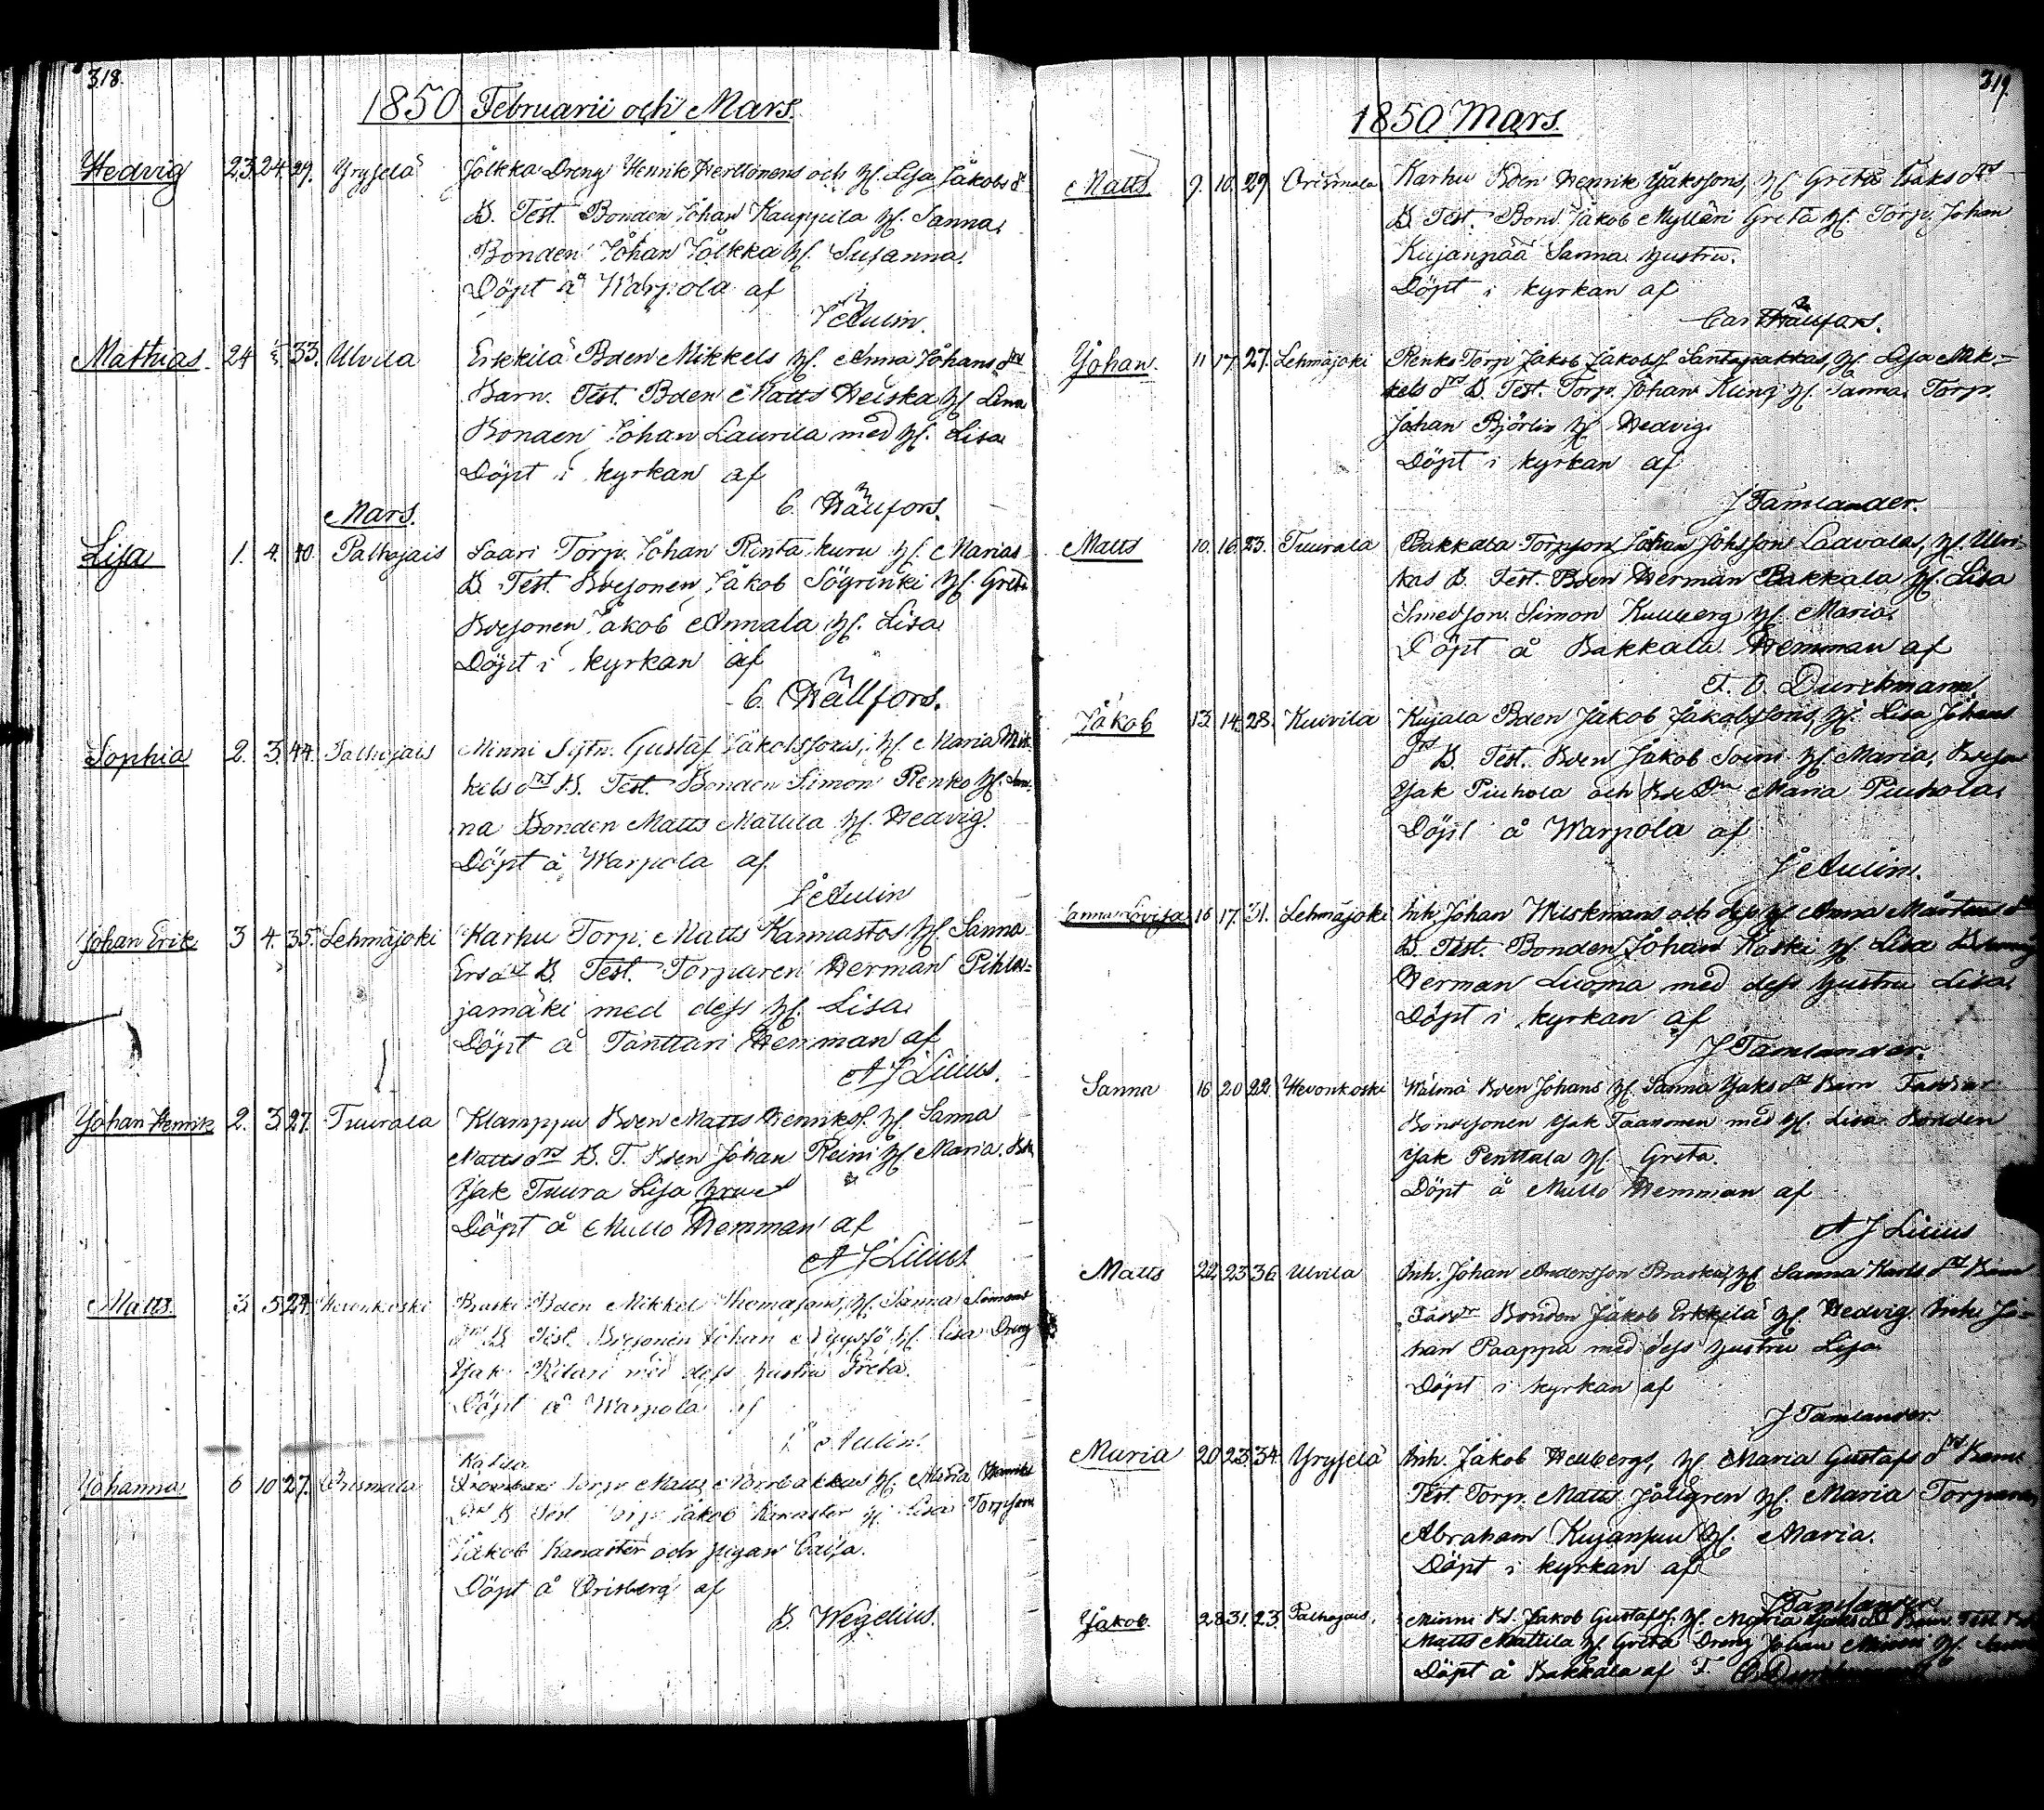 318.
1850 Februarii och Mars.
Hedvig 23. 24. 29. Yryselä Jålkka Dreng Henrik Herttonens och H. Lisa Jakobs dr
B. Test. Bonden Johan Kauppila H. Sanna,
Bonden Johan Jålkka H. Susanna.
Döpt å Warpola af
J Aulin.
Mathias. 24 33. Ulvila Erkkilä Bden Mikkels H. Anna Johans dr
Barn. Test. Bden Matts Heiska H. Lena
Bonden Johan Laurila med H. Lisa
Döpt i kyrkan af
C. Hällfors.
Mars.
Lisa 1. 4. 40. Palhojais Saari Torp. Johan Rintakuru H. Marias
B. Test. Bdesonen Jakob Sögrinki H. Greta
Bdesonen Jakob Annala H. Lisa
Döpt i kyrkan af
C. Hällfors.
Sophia 2. 3. 44. Palhojais Minni Sytn. Gustaf Jakobssons, H. Maria Mik
kels drs B. Test. Bonden Simon Renko H. San
na Bonden Matts Mattila H. Hedvig.
Döpt å Warpola af
J Aulin
Johan Erik 3 4. 35. Lehmäjoki Karhu Torp. Matts Kannastos H. Sanna
Ers dr B. Test. Torparen Herman Pihla=
jamäki med dess H. Lisa
Döpt å Tänttäri Hemman af
A J Lilius.
Johan Henrik 2. 3 27. Tuurala Klamppu Bden Matts Henrikss. H. Sanna
Matts drs B. T. Bden Johan Reini H. Maria. Bdn
Jak Tuura Lisa hru
Döpt å Mullo Hemman af
A J Lilius
Matts. 3 5 27. Hevonkoski Braski Bden Mikkel Thomassons, H. Sanna Simons
drs B Test. Bdesonen Johan H. Lisa Dreng
Jak Kitari med dess hustru Greta.
Döpt å Warpola af
J Aulin.
Johanna. 6 10 27. Orismala Torp. Matts Norrbackas H. Maria Henriks
Drs B Test Torp. Jakob Kanaster H. Lisa Torpson
Jakob Kanaster och pigan Caisa.
Döpt å Orisberg af
B. Wegelius.
319.
1850 Mars.
Matts. 9. 10. 29 Orismala Karhu Bden Henrik Jakssons, H. Greta Isaks drs
B. Test. Bond. Jakob Mylläri Greta H. Torp. Johan
Kujanpää Sanna hustru.
Döpt i kyrkan af
Carl Hällfors.
Johan. 11 17. 27. Lehmäjoki Renko Torp Jakob Jakobss. Santapakkas, H. Lisa Mik=
kels drs B. Test. Torp. Johan Kling H. Sanna, Torp.
Johan Björlin H. Hedvig.
Döpt i kyrkan af
J Tamlander.
Matts 10. 16. 23. Tuurala Bakkala Torpson Johan Johsson Laavalas, H. Ulri-
kas B. Test. Bden Herman Bakkala H. Lisa
Smedson Simon Kullberg H. Maria.
Döpt å Bakkala Hemman af
T. C. Durchmann.
Jakob 13. 14. 28. Kuivila Kujala Bden Jakob Jakobssons, H. Lisa Johans
drs B. Test. Bden Jakob Soini H. Maria, Bdeson
Jak Piuhola och Bde Dn Maria Piuhola.
Döpt å Warpola af
J Aulin.
Sanna Lovisa 16 17. 31. Lehmäjoki Inh. Johan Hilskmans och dess H. Anna Mårtens dr
B. Test. Bonden Johan Koski H. Lisa
Herman Luoma med dess hustru Lisa.
Döpt i kyrkan af
J Tamlander.
Sanna 16 20 22. Hevonkoski Wälmä Bden Johans H. Sanna Jaks drs Barn Faddrar
Bondesonen Jak Taavonen med H. Lisa Bonden
Jak Penttala H. Greta.
Döpt å Mullo Hemman af
A J Lilius
Matts 22 23 36 Ulvila Inh. Johan Andersson Braskis, H. Sanna Karls drs Barn
Faddr Bonden Jakob Erkkilä H. Hedvig. Inh. Jo-
han Paappa med dess hustru Lisa
Döpt i kyrkan af
J Tamlander.
Maria 20 23 34 Yryselä Inh. Jakob Hellbergs, H. Maria Gustafs drs Barn
Test. Torp. Matts Sjöligren H. Maria Torparen
Abraham Kujanpuu H. Maria.
Döpt i kyrkan af
J Tamlander
Jakob. 28 31. 23. Palhojais. Minni Bd. Jakob Gustafss. H. Maria Jaks drs Barn Test. Bd
Matts Mattila H. Greta Dreng Johan Minni H. Sanna
Döpt å Bakkala af T. C Durchmann